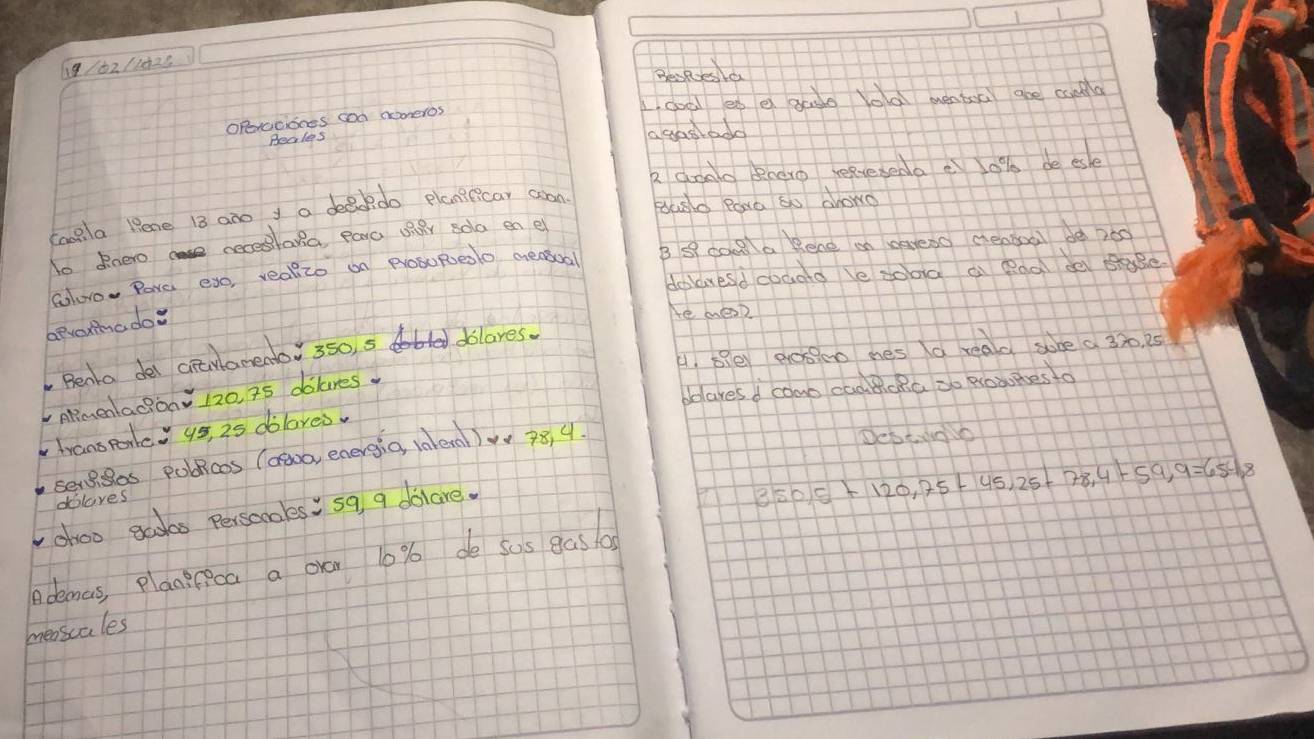 19/02/202
Operaciónes con números
Reales
Camila tiene 13 año y a desidido planificar cuan-
to dinero necesitaria para vivir sola en el
futuro. Para eso, realizo un Prosupuesto mensual
aproximado:
Renta del apartamento: 350,5 dólares.
Alimentación: 120,75 dólares.
transporte: 45,25 dólares.
servisios publicos (agua, energía, internt) 78,4.
dólares
otros gastos Personales: 59,9 dólare.
Ademas, Planifica a orar 10% de sus gastos
mensuales
Respuesta
1. cual es el gasto total mensual que camila
a gastado
2 cuanto dinero representa el 10% de este
gasto Para su ahorro
3 si camila tiene un ingreso mensual de 700
dolares¿ cuanto le sobra al final del siguie
te mes?
4. si el proximo mes la renta sube a 370,25
dolares¿ como cambiaria su prosupuesto
Desarrollo
350,5 + 120,75 + 45,25 + 78,4 + 59,9 = 654,8